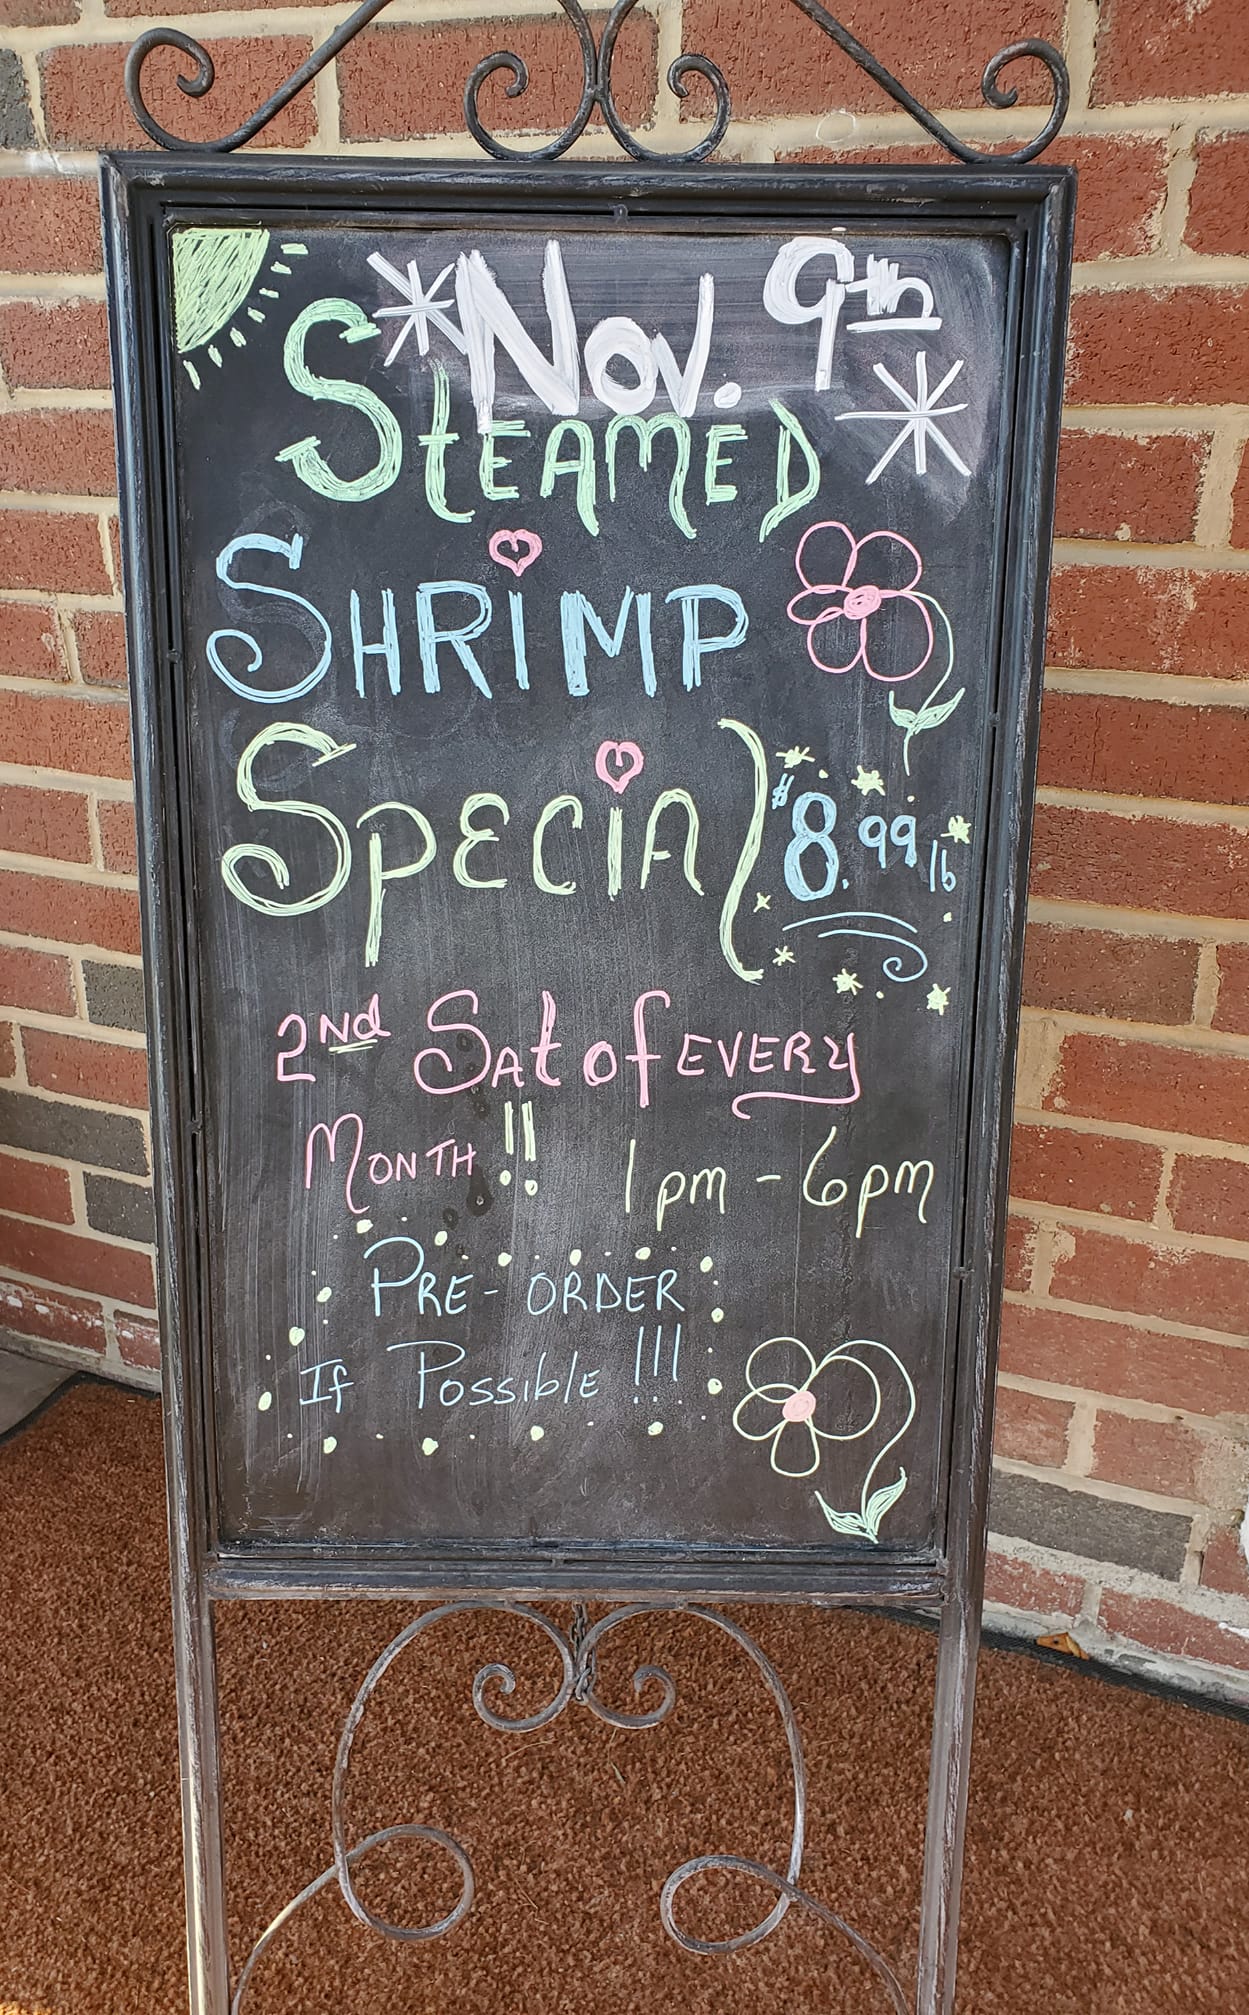 *Nov. 9th*
STEAMED
SHRIMP
SPECIAL $8.99 lb
2Nd SAt of EVERY
MONTH!! 1pm - 6pm
PRE-ORDER
If Possible!!!